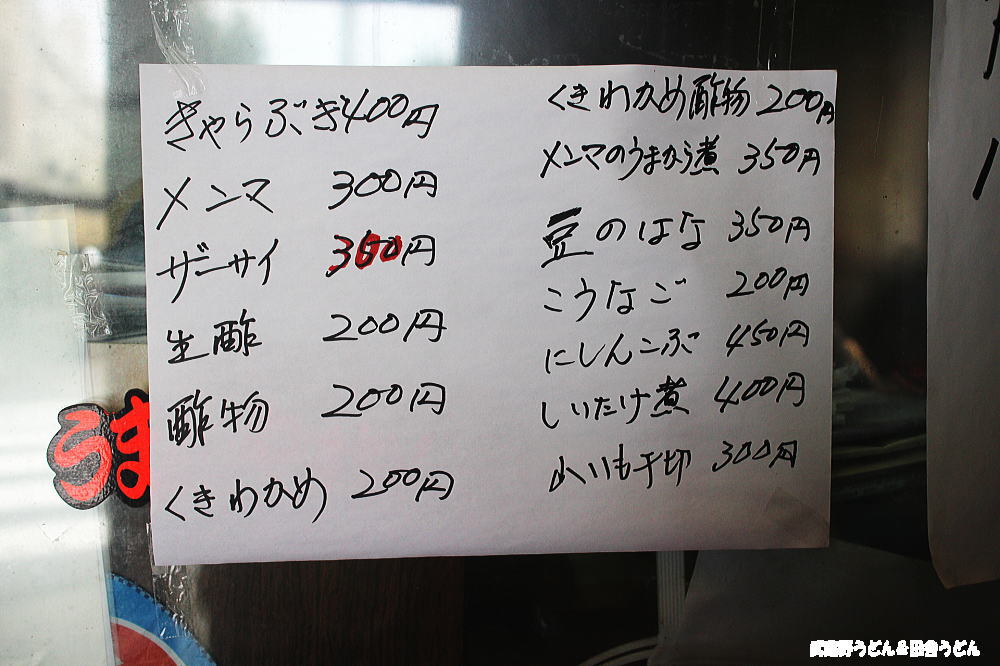 きゃらぶき400円
メンマ 300円
ザーサイ 350円
生酢 200円
酢物 200円
くきわかめ 200円
くきわかめ酢物 200円
メンマのうまから煮 350円
豆のはな 350円
こうなご 200円
にしんこぶ 450円
しいたけ煮 400円
山いも千切 300円
うま
武蔵野うどん&田舎うどん